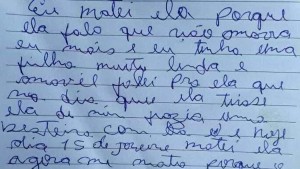 Eu matei ela porque
ela falo que não amava
eu mais e eu tinha uma
filha muito linda e
amavel falei pra ela que
no dia que ela tirase
ela de min fazia uma
besteira com ela e hoje
dia 15 de janeiro matei ela
agora mi mato porque